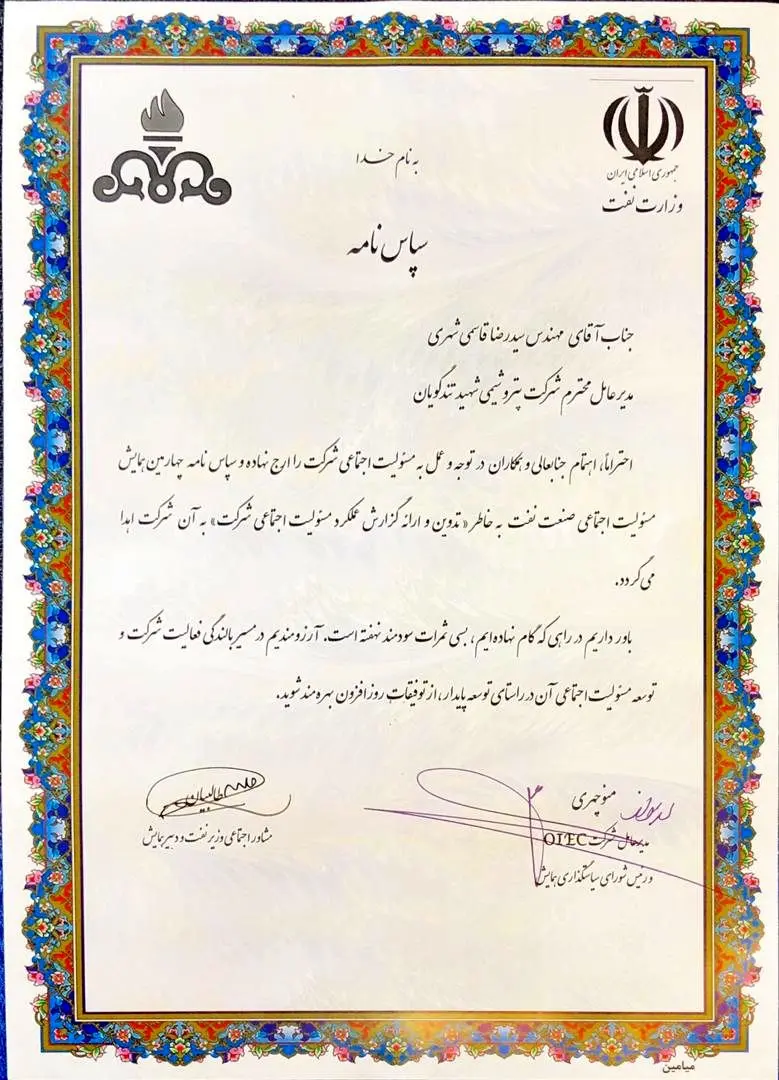 جمهوری اسلامی ایران
وزارت نفت
به نام خدا
سپاس نامه
جناب آقای مهندس سیدرضا قاسمی شهری
مدیرعامل محترم شرکت پتروشیمی شهید تندگویان
احتراماً، اهتمام جنابعالی و همکاران در توجه و عمل به مسئولیت اجتماعی شرکت را ارج نهاده و سپاس نامه چهارمین همایش
مسئولیت اجتماعی صنعت نفت به خاطر «تدوین و ارائه گزارش عملکرد مسئولیت اجتماعی شرکت» به آن شرکت اهدا
می گردد.
باور داریم در راهی که گام نهاده‌ایم، بسی ثمرات سودمند نهفته است. آرزومندیم در مسیر بالندگی فعالیت شرکت و
توسعه مسئولیت اجتماعی آن در راستای توسعه پایدار، از توفیقات روزافزون بهره مند شوید.
منوچهری
مدیرعامل شرکت OIEC
و رئیس شورای سیاستگذاری همایش
طالبیان
مشاور اجتماعی وزیر نفت و دبیر همایش
میامین